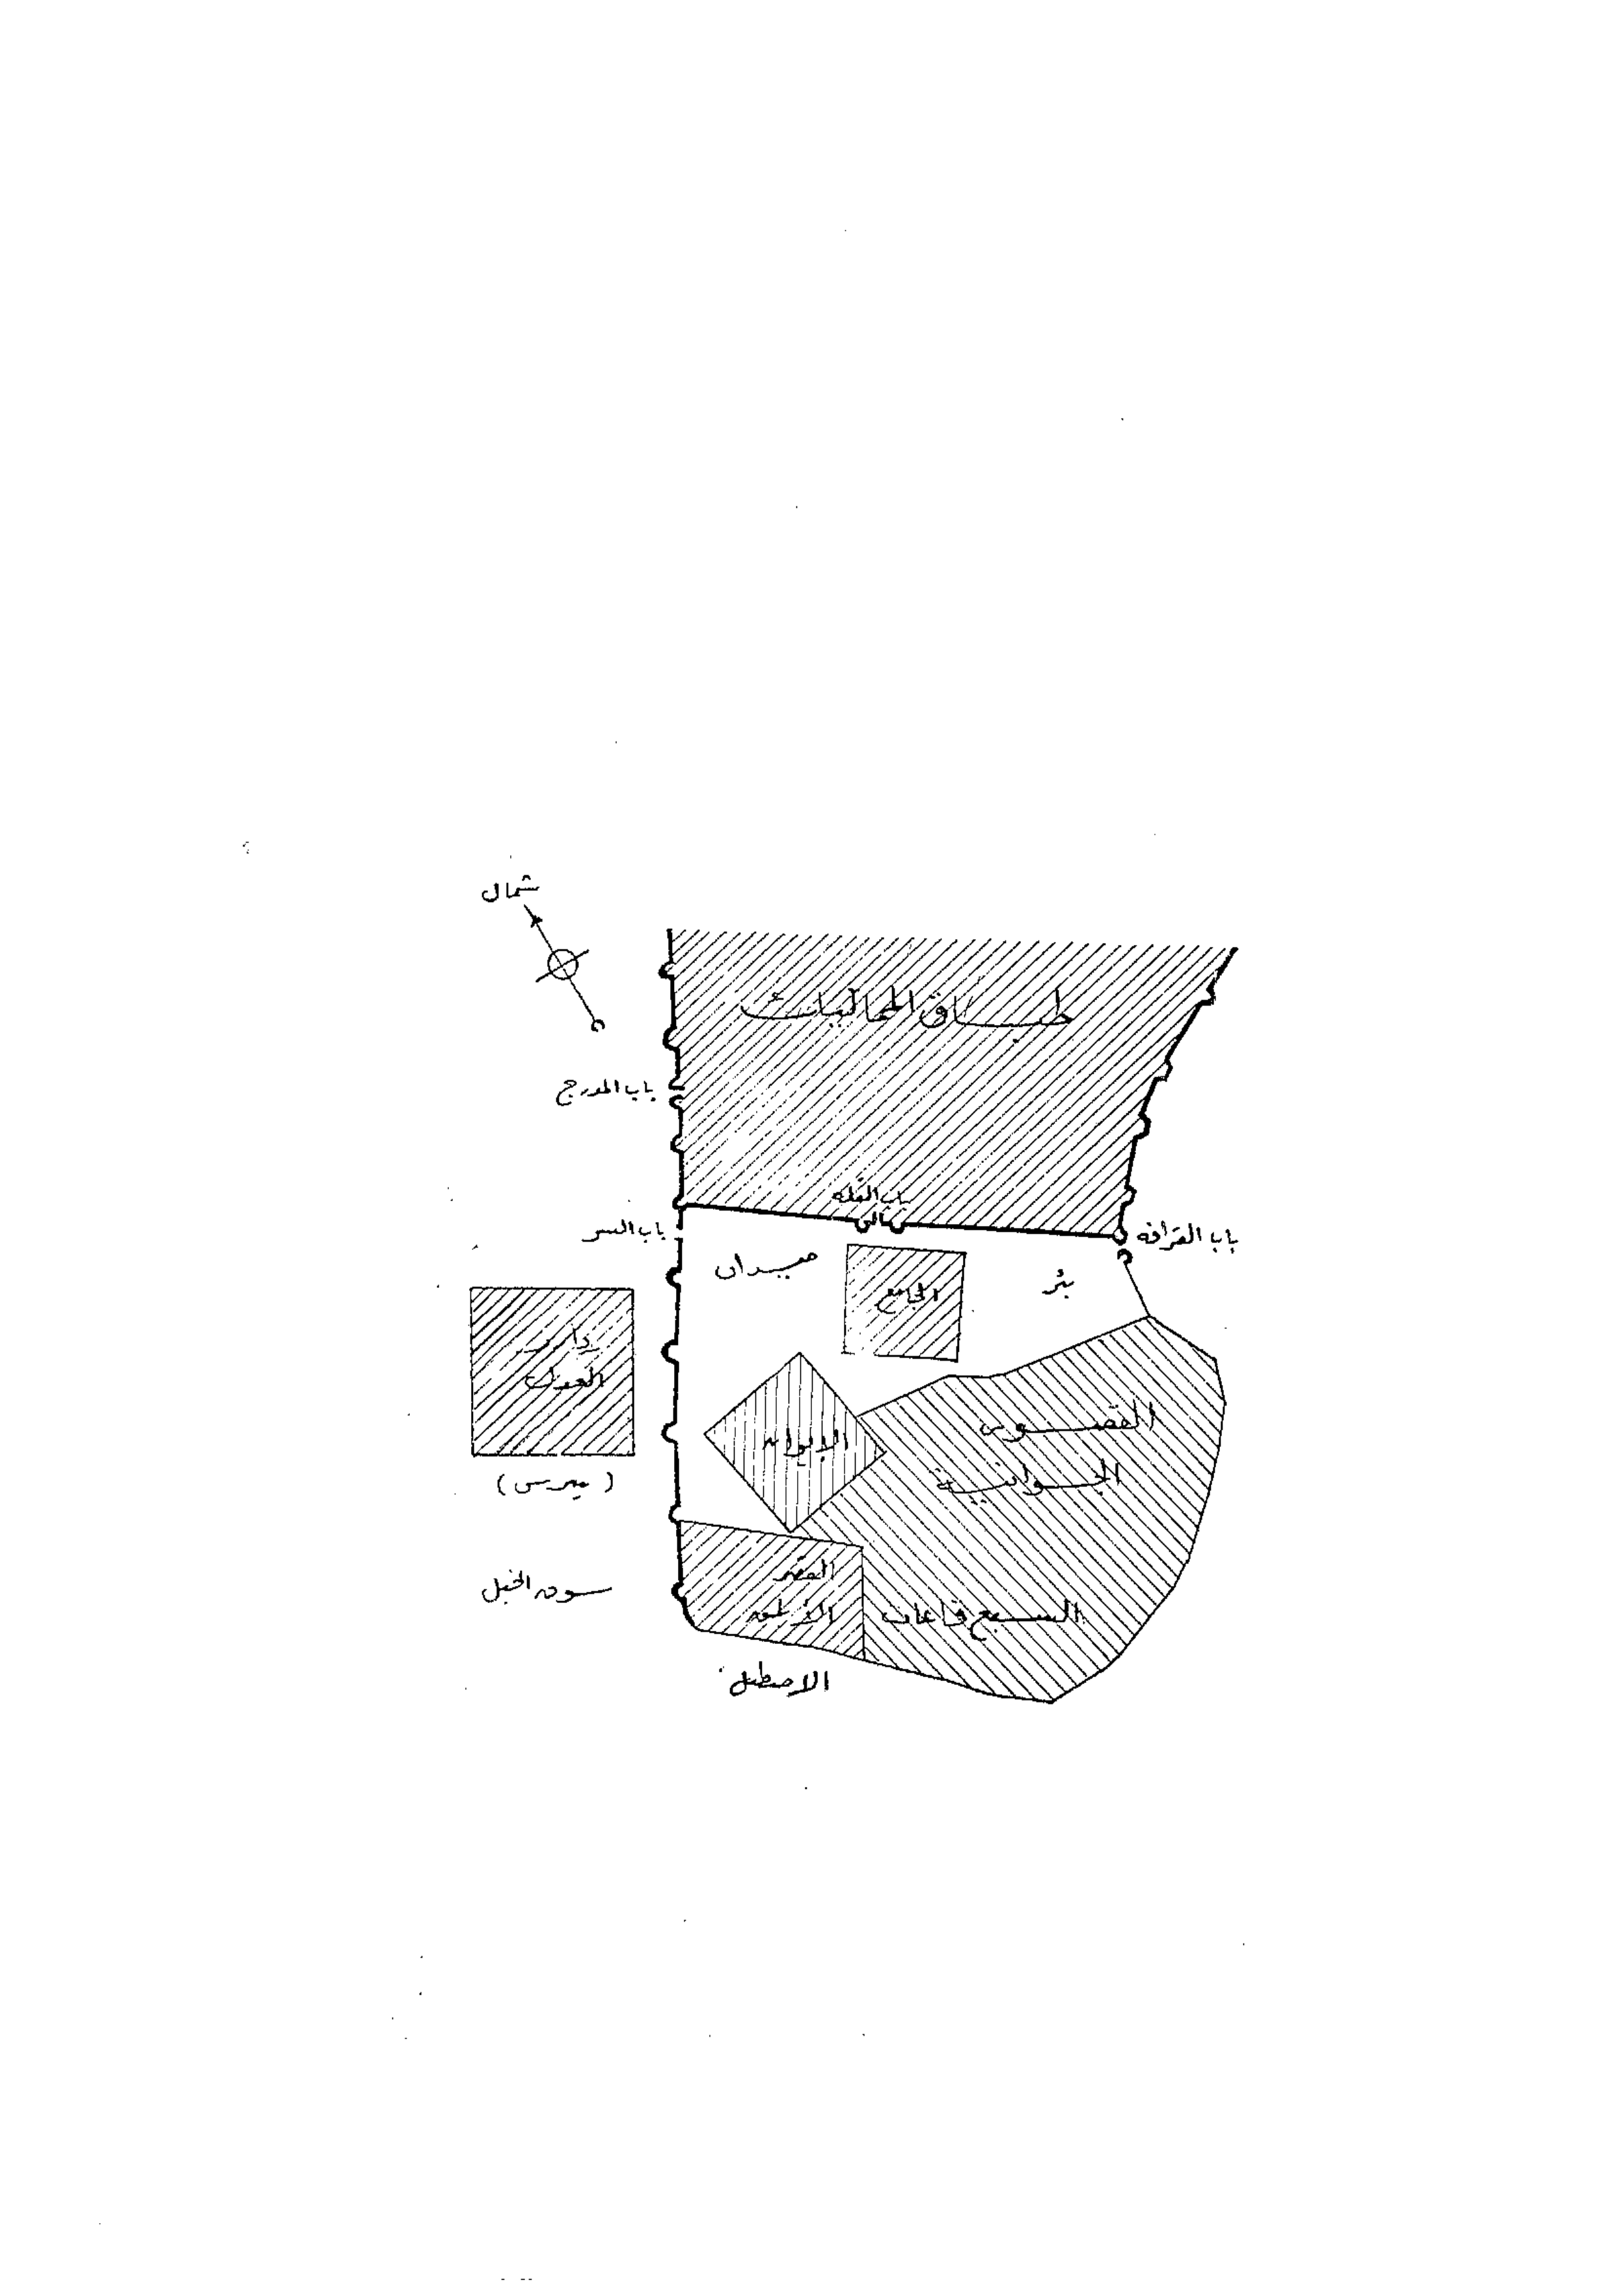 شمال
طباق المماليك
باب المدرج
باب القلة
باب السر
باب القرافة
ميدان
بئر
الجامع
دار
العدل
(بيبرس)
القصور
الجوانية
الإيوان
القصر
الأبلق
السبع قاعات
سوق الخيل
الاصطبل